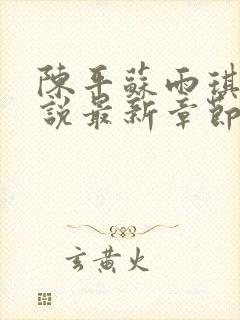 陳平蘇雨琪
說最新章節
玄黃火